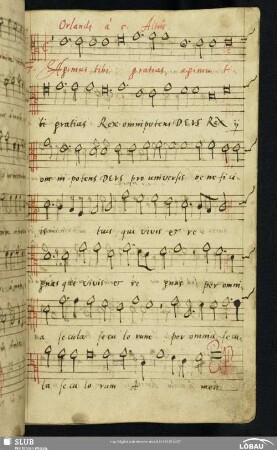 Orlando à 5. Altus
Agimus tibi gratias, agimus t
ti gratias Rex omnipotens DEUS Rex ij
om ni potens DEUS pro universis be ne fi ci
tuis qui vivis et re
gnas qui vivis et re gnas per omni
na secula secu lo rum per omnia secu
la secu lo rum A men
SLUB
LÖBAU